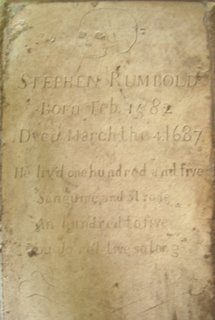 STEPHEN RUMBOLD
Born Feb. 1582
Dyed March the 4. 1687
He liv'd one hundred and five
Sanguine and Strong
An hundred to five
you do not live so long